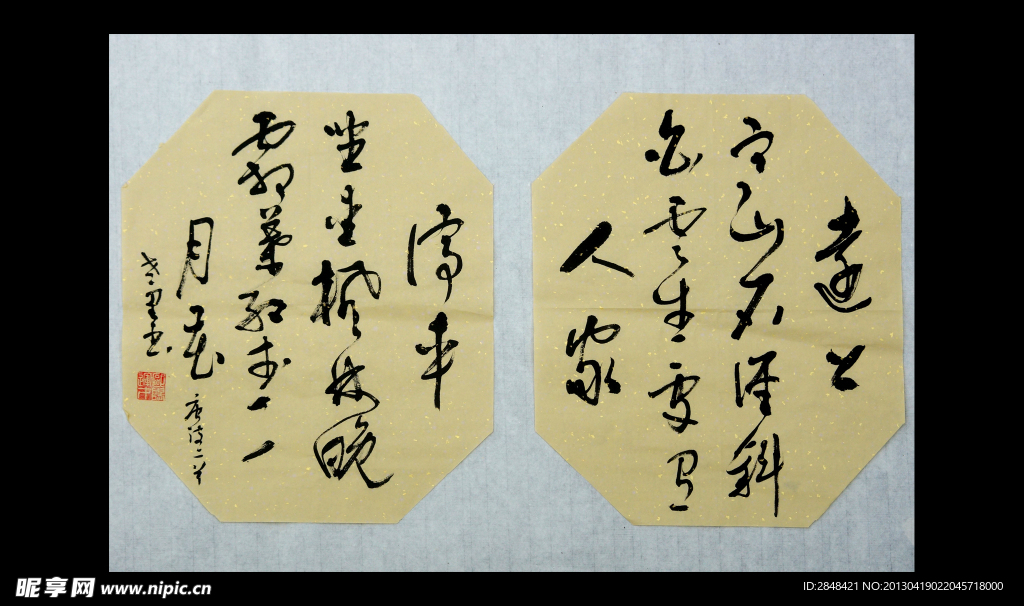 遠上
寒山石徑斜
白雲生處有
人家
停車
坐愛楓林晚
霜葉紅於二
月花
唐诗二首
昵享网 www.nipic.cn
ID:2848421 NO:20130419022045718000